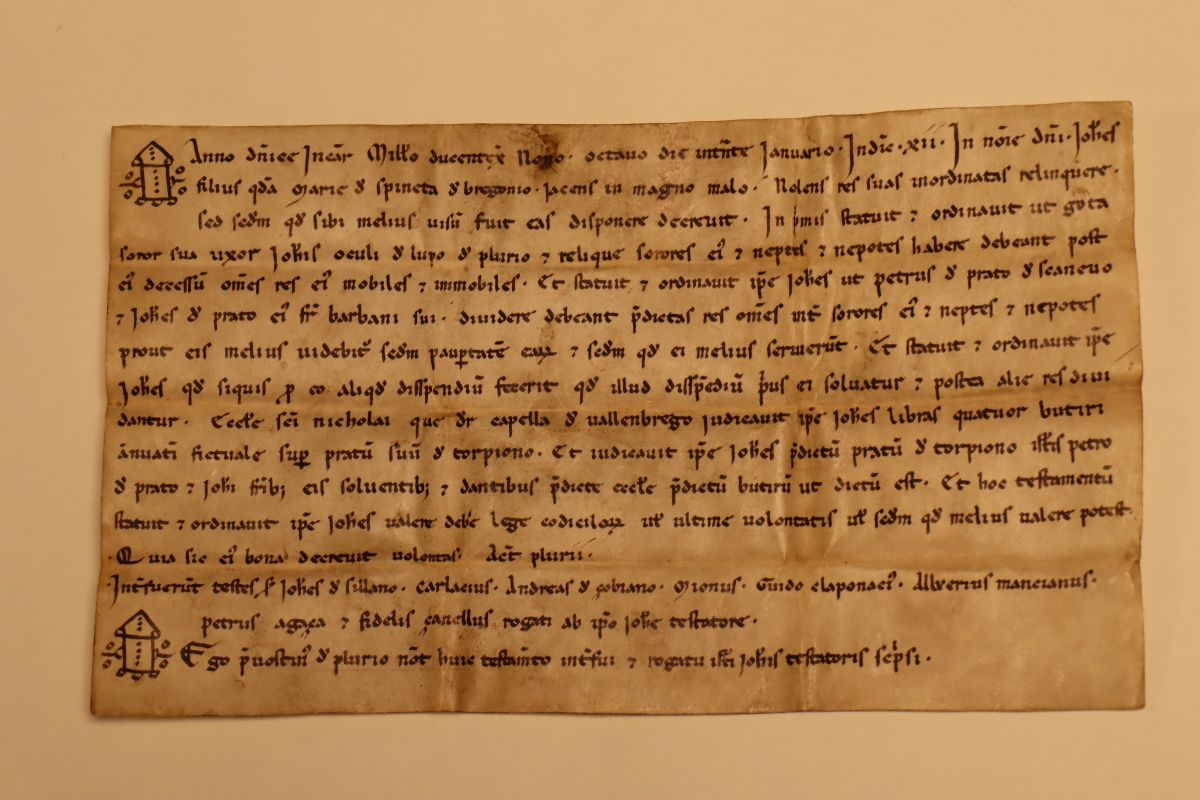 Anno dn̄ice Incar̄ Mill'o ducentex̄ Nono · octavo die intn̄te Ianuario · Indic̄ · xii · In nōie dn̄i · Ioh̄es
filius qd̄a marie đ spineta đ bregonio · iacens in magno malo · Nolens res suas inordinatas relinquere ·
sed sedm̄ qđ sibi melius uisū fuit eas disponere decreuit · In p̄mis statuit ⁊ ordinauit ut gota
soror sua uxor Ioh̄is oculi đ lupo đ plurio ⁊ relique sorores ei' ⁊ neptes ⁊ nepotes habere debeant post
ei' decessū om̄es res ei' mobiles ⁊ immobiles · Et statuit ⁊ ordinauit ip̄e Ioh̄es ut petrus đ prato đ scaneuo
⁊ Ioh̄es đ prato ei' fr̄ barbani sui · diuidere debeant p̄dictas res om̄es int̄ sorores ei' ⁊ neptes ⁊ nepotes
prout eis melius uidebit' sedm̄ paup̱tatē eaꝝ ⁊ sedm̄ qđ ei melius seruierūt · Et statuit ⁊ ordinauit ip̄e
Ioh̄es qđ siquis ꝓ eo aliqđ dissp̱endiū fecerit qđ illud dissp̱ēdiū p̄us ei soluatur ⁊ postea alie res diui
dantur · Eccl̄e sc̄i nicholai que dr̄ capella đ uallenbrego iudicauit ip̄e Ioh̄es libras quatuor butiri
ānuati fictuale sup̱ pratū suū đ torpiono · Et iudicauit ip̄e Ioh̄es p̄dictū pratū đ torpiono ist̄is petro
đ prato ⁊ Ioh̄i fr̄ibꝫ eis soluentibꝫ ⁊ dantibus p̄dicte eccl̄e p̄dictū butirū ut dictū est · Et hoc testamentū
statuit ⁊ ordinauit ip̄e Ioh̄es ualere deb̄e lege codiciloꝝ ul̄ ultime uolontatis ul̄ sedm̄ qđ melius ualere potest
· Quia sic ei' bona decreuit uolontas · Act̄ plurii ·
· Int̄fuerūt testes Ioh̄es đ sillano · carlacius · Andreas đ çobiano · mionus · Guido claponaci' · Aluerius mancianus ·
petrus agaça ⁊ fidelis çanellus rogati ab ip̄o Ioh̄e testatore ·
Ego p̄uostin' đ plurio not̄ huic testam̄to int̄fui ⁊ rogatu ist̄i Ioh̄is testatoris sc̄psi ·